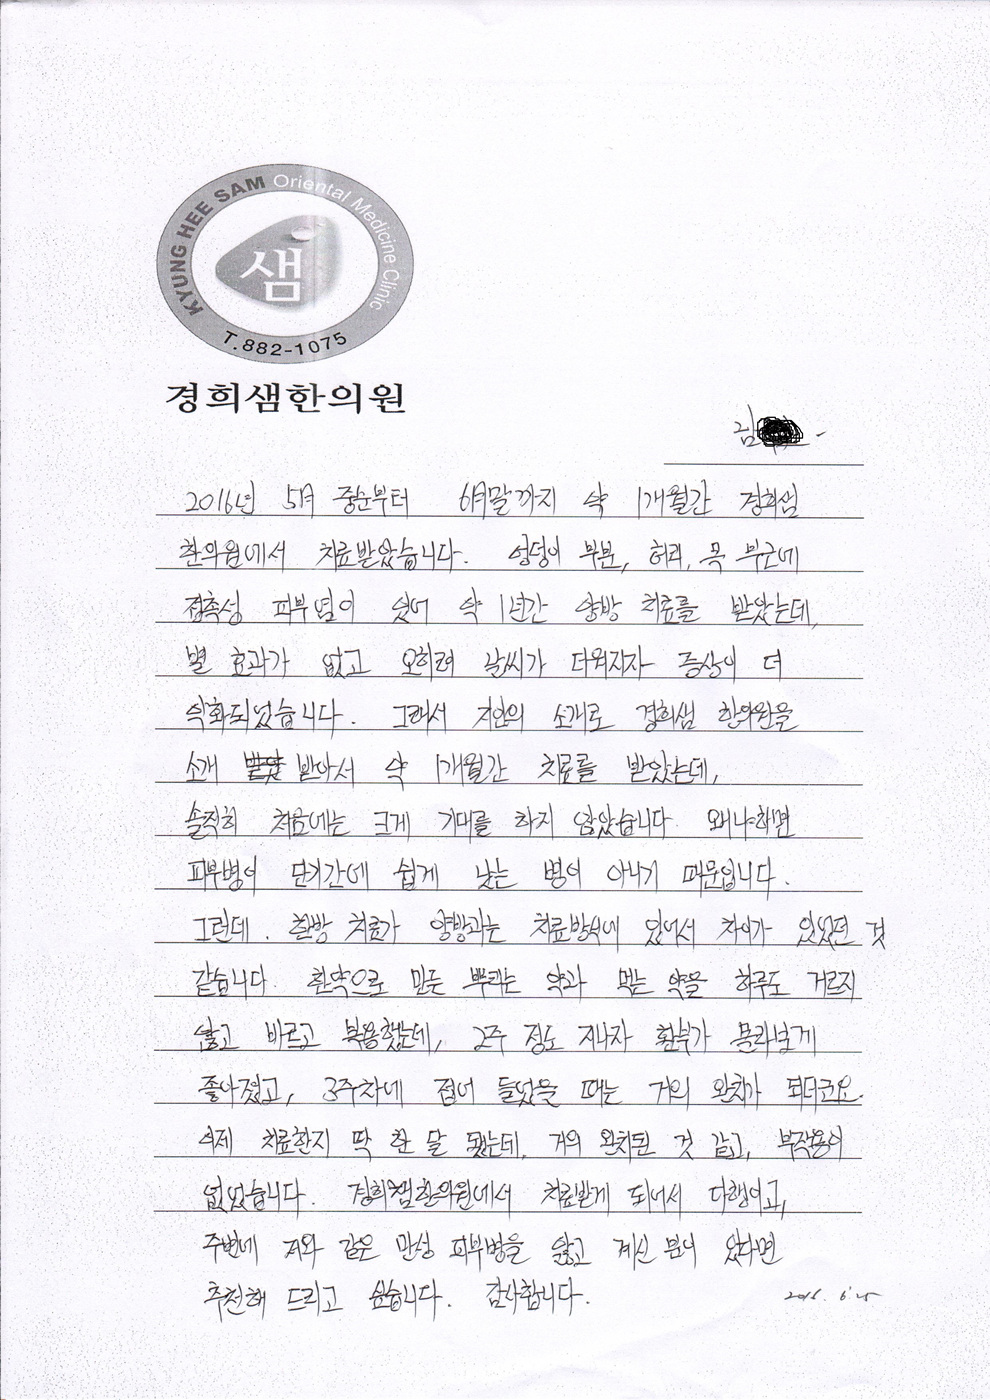 KYUNG HEE SAM Oriental Medicine Clinic
샘
T.882-1075
경희샘한의원
김
2016년 5월 중순부터 6월말까지 약 1개월간 경희샘
한의원에서 치료받았습니다. 엉덩이 부분, 허리, 목 부근에
접촉성 피부염이 있어 약 1년간 양방 치료를 받았는데,
별 효과가 없고 오히려 날씨가 더워지자 증상이 더
악화되었습니다. 그래서 지인의 소개로 경희샘 한의원을
소개 받아서 약 1개월간 치료를 받았는데,
솔직히 처음에는 크게 기대를 하지 않았습니다. 왜냐하면
피부병이 단기간에 쉽게 낫는 병이 아니기 때문입니다.
그런데. 한방 치료가 양방과는 치료방식에 있어서 차이가 있었던 것
같습니다. 한약으로 만든 뿌리는 약과 먹는 약을 하루도 거르지
않고 바르고 복용했는데, 2주 정도 지나자 환부가 몰라보게
좋아졌고, 3주차에 접어 들었을 때는 거의 완치가 되더군요.
이제 치료한지 딱 한 달 됐는데, 거의 완치된 것 같고, 부작용이
없었습니다. 경희샘한의원에서 치료받게 되어서 다행이고,
주변에 저와 같은 만성 피부병을 앓고 계신 분이 있다면
추천해 드리고 싶습니다. 감사합니다.
2016. 6.25